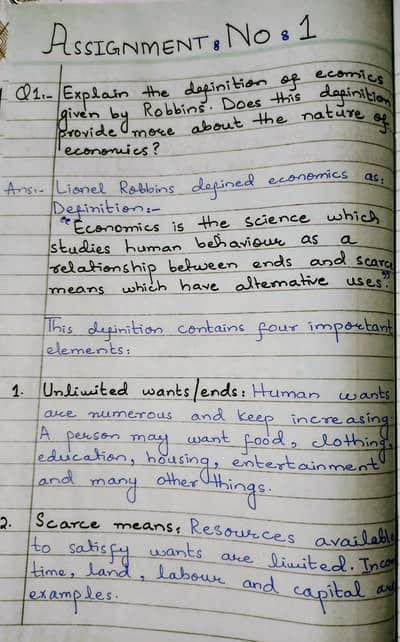 ASSIGNMENT: No: 1
Q1:- Explain the definition of ecomics
given by Robbins. Does this definition
provide more about the nature of
economics?
Ans:- Lionel Robbins defined economics as:
Definition:-
"Economics is the science which
studies human behaviour as a
relationship between ends and scarce
means which have alternative uses."
This definition contains four important
elements:
1. Unlimited wants/ends: Human wants
are numerous and keep increasing.
A person may want food, clothing,
education, housing, entertainment
and many other things.
2. Scarce means: Resources available
to satisfy wants are limited. Incom
time, land, labour and capital are
examples.